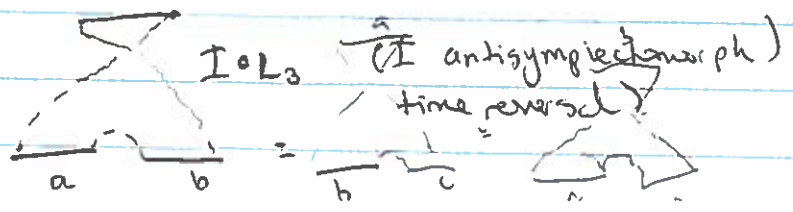 a
I∘L₃ (I antisymplectomorph)
time reversal)
a b = b c